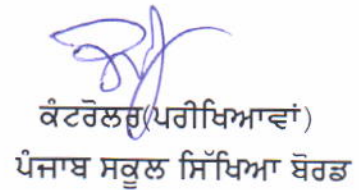 ਕੰਟਰੋਲਰ(ਪਰੀਖਿਆਵਾਂ)
ਪੰਜਾਬ ਸਕੂਲ ਸਿੱਖਿਆ ਬੋਰਡ